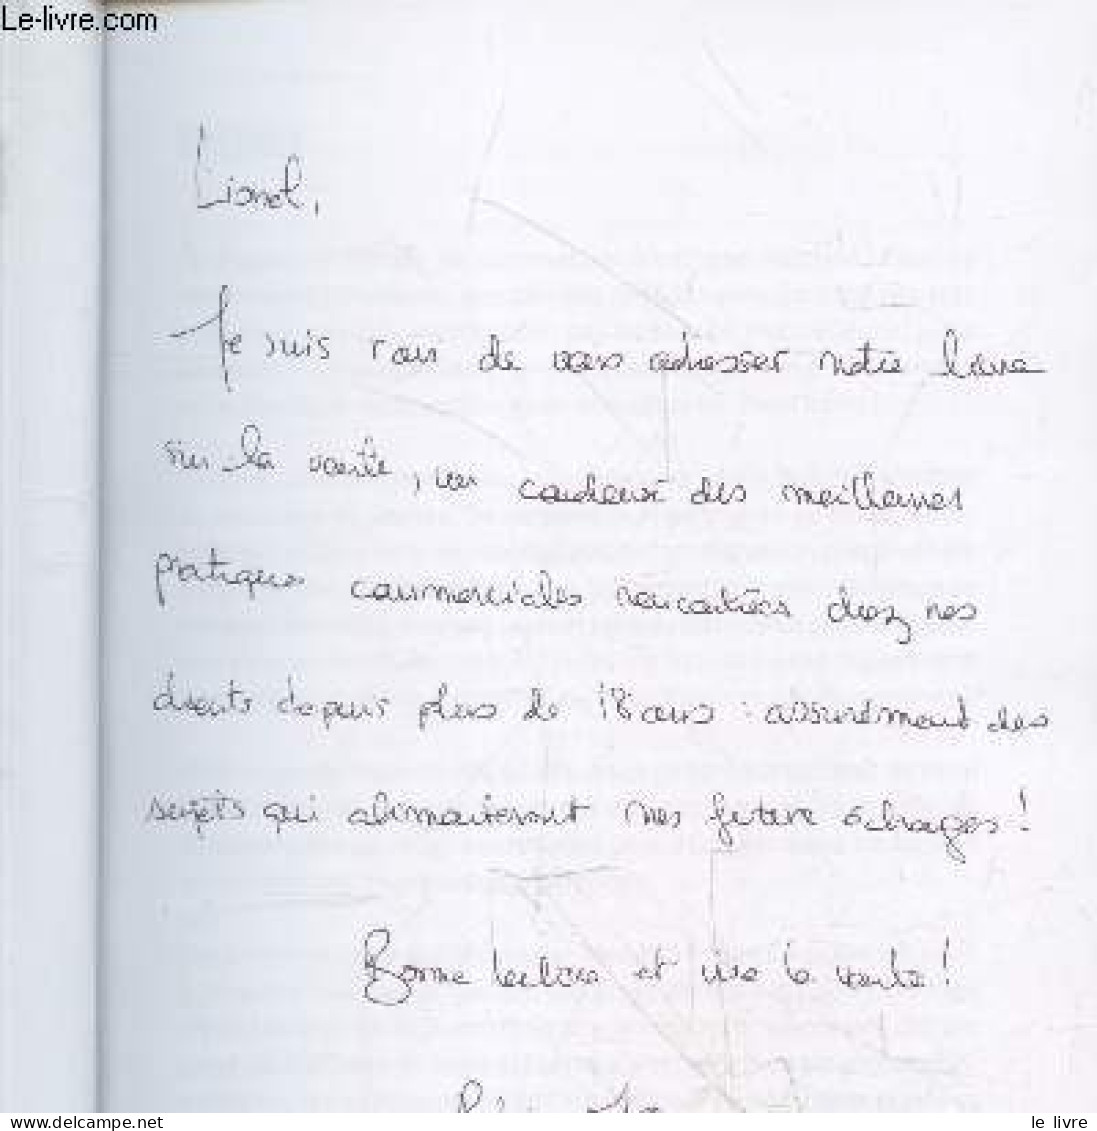 Le-livre.com
Lionel,
Je suis ravi de vous adresser notre livre
sur la vente, un condensé des meilleures
pratiques commerciales rencontrées chez nos
clients depuis plus de 18 ans : assurément des
sujets qui alimenteront nos futurs échanges !
Bonne lecture et vive la vente !
le livre